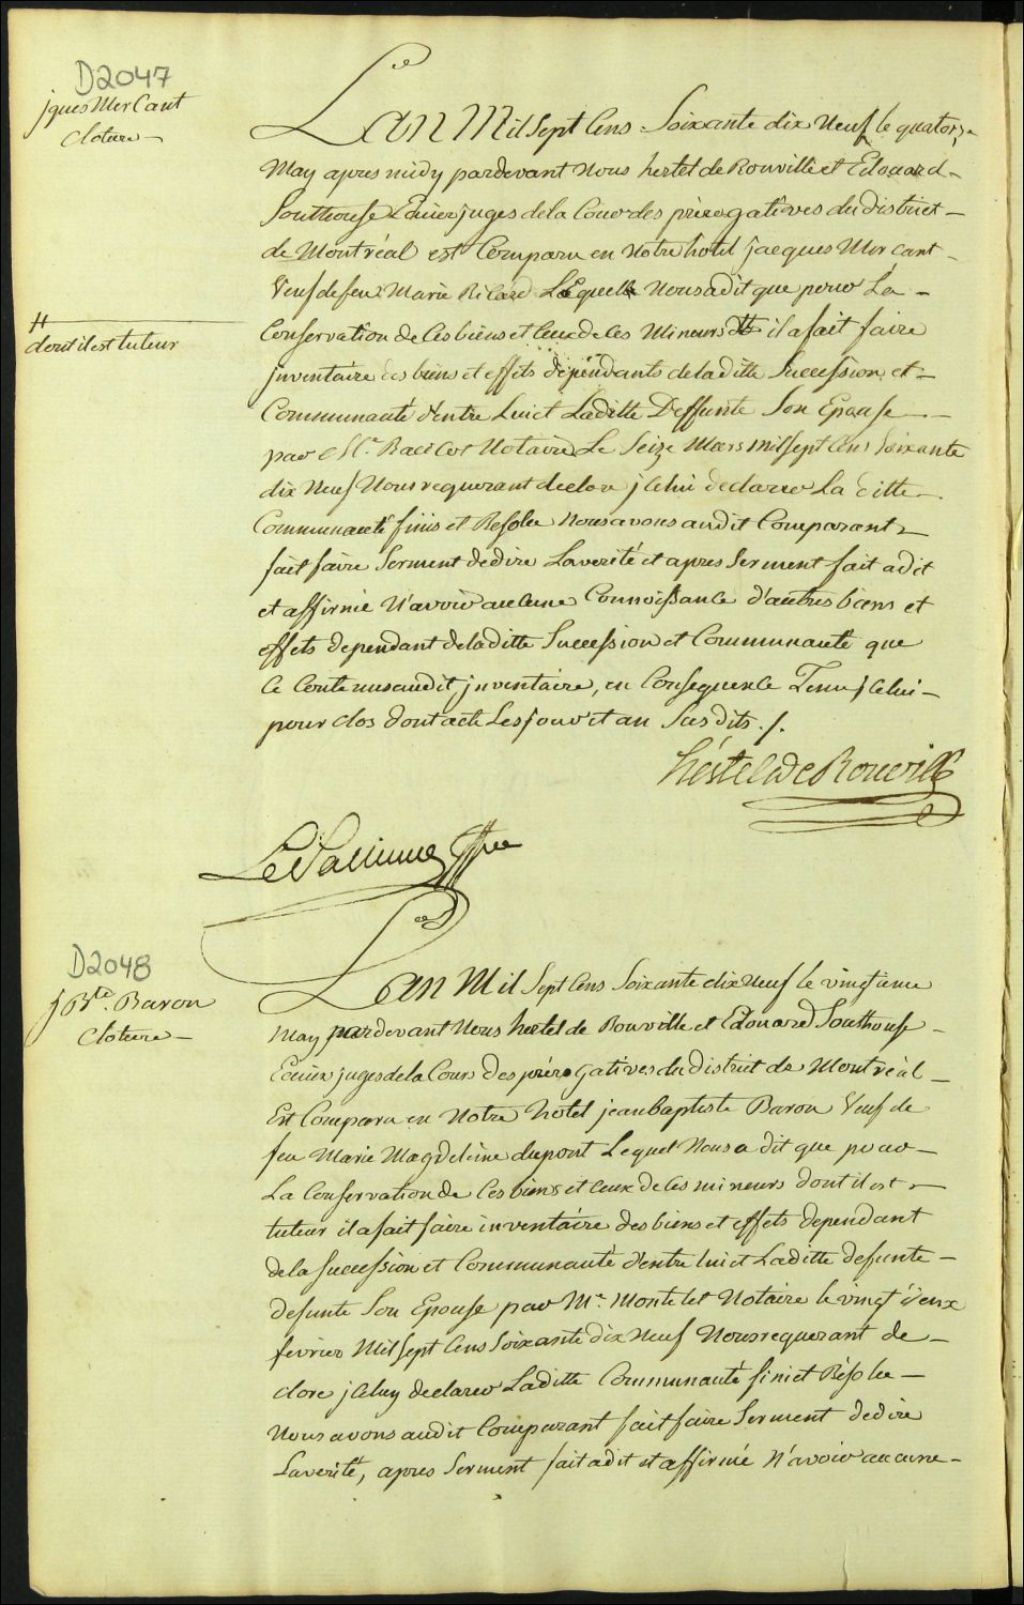 D2047
jques Mercant
Cloture
L'an Mil Sept Cens Soixante dix Neuf le quatorze
May apres midy pardevant Nous hertel de Rouville et Edouard
Southouse Ecuier juges de la Cour des prérogatives du district
de Montréal est Comparu en Notre hotel jacques Mercant
Veuf de feue Marie Ricard Lequel Nous a dit que pour La
Conservation de Ces biens et Ceux de Ces Mineurs # il a fait faire
# dont il est tuteur
jnventaire des biens et effets dépendants de la ditte Succession et
Communauté d'entre Lui et Laditte Deffunte Son Epouse
par Me. Racicot Notaire Le Seize Mars mil sept Cens Soixante
dix Neuf Nous requerant de clore jcelui declarer La ditte
Communauté finis et Resolue Nous avons audit Comparant
fait faire Serment de dire La verité et apres Serment fait a dit
et affirmé N'avoir aucune Connoissance d'autres biens et
effets dependant de laditte Succession et Communauté que
Ce Contenus audit jnventaire, en Consequence Tenu jcelui
pour clos dont acte Les jour et an Susdits ./.
hertel de Rouville
LePallieur Gffier
D2048
j Bte. Baron
Cloture
L'an Mil Sept Cens Soixante dix Neuf le vingtieme
May pardevant Nous hertel de Rouville et Edouard Southouse
Ecuier juges de la Cours Des prérogatives du district de Montréal
Est Comparu en Notre hotel jean baptiste Baron Veuf de
feu Marie Magdeleine dupont Lequel Nous a dit que pour
La Conservation de Ces biens et Ceux de Ces mineurs dont il est
tuteur il a fait faire inventaire des biens et effets dependant
de la Succession et Communauté d'entre lui et Laditte defunte
defunte Son Epouse par Me. Montelet Notaire le vingt deux
fevrier Mil Sept Cens Soixante dix Neuf Nous requerant de
clore jceluy declarer Laditte Communauté fini et Résolue
Nous avons audit Comparant fait faire Serment de dire
La verité, apres Serment fait a dit et affirmé N'avoir aucune